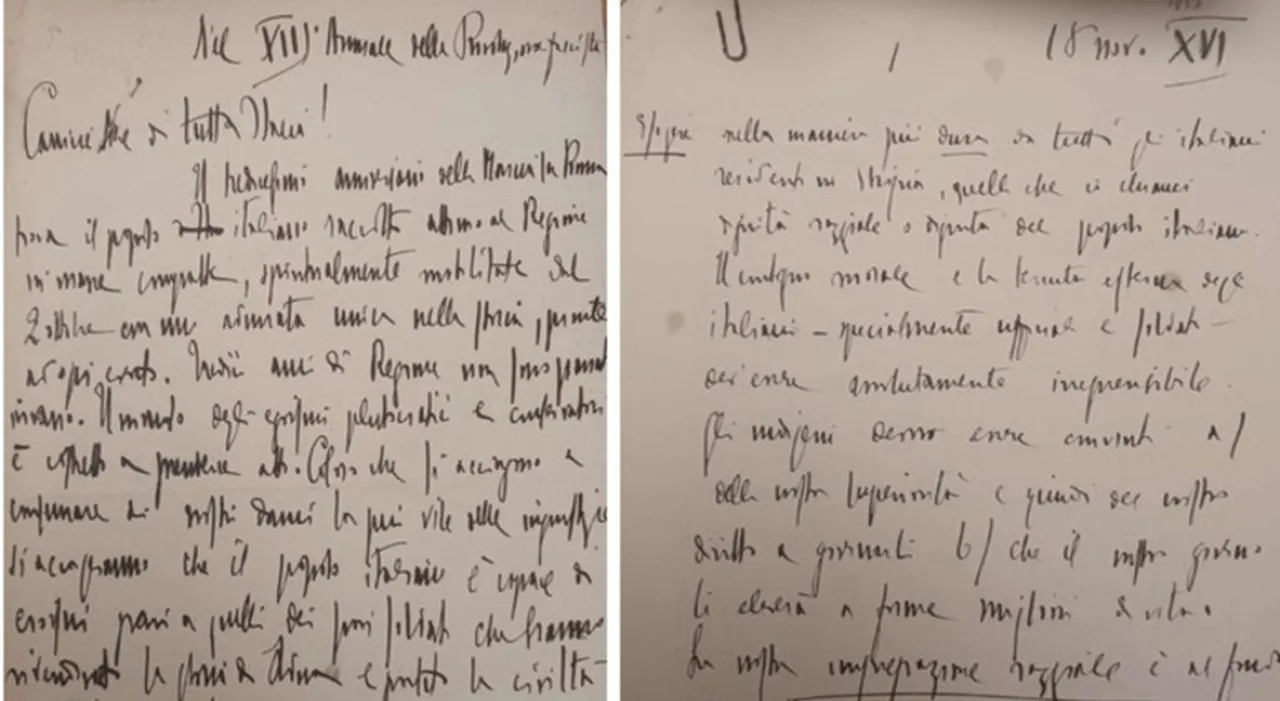 Nel XIII° Annuale della Rivoluz. fascista
Camicie Nere di tutta Italia!
Il tredicesimo anniversario della Marcia su Roma
trova il popolo italiano raccolto attorno al Regime
in masse compatte, spiritualmente mobilitate dal
2 ottobre con una adunata unica nella storia, pronte
ad ogni evento. Tredici anni di Regime non sono passati
invano. Il mondo degli egoismi plutocratici e conservatori
è costretto a prenderne atto. Coloro che si accingono a
consumare ai nostri danni la più vile delle ingiustizie
si accorgeranno che il popolo italiano è capace di
eroismi pari a quelli dei suoi soldati che hanno
rivendicato la gloria di Adua e portato la civiltà
1 18 nov. XVI
Esigere nella maniera più dura da tutti gli italiani
residenti in, quella che si chiama
dignità razziale o dignità del popolo italiano.
Il contegno morale e la tenuta esterna degli
italiani – specialmente ufficiali e soldati –
dev'essere assolutamente irreprensibile.
Gli indigeni devono essere convinti a/
della nostra superiorità e quindi del nostro
diritto a governarli b/ che il nostro governo
li eleverà a forme migliori di vita.
La nostra impreparazione razziale è al fondo